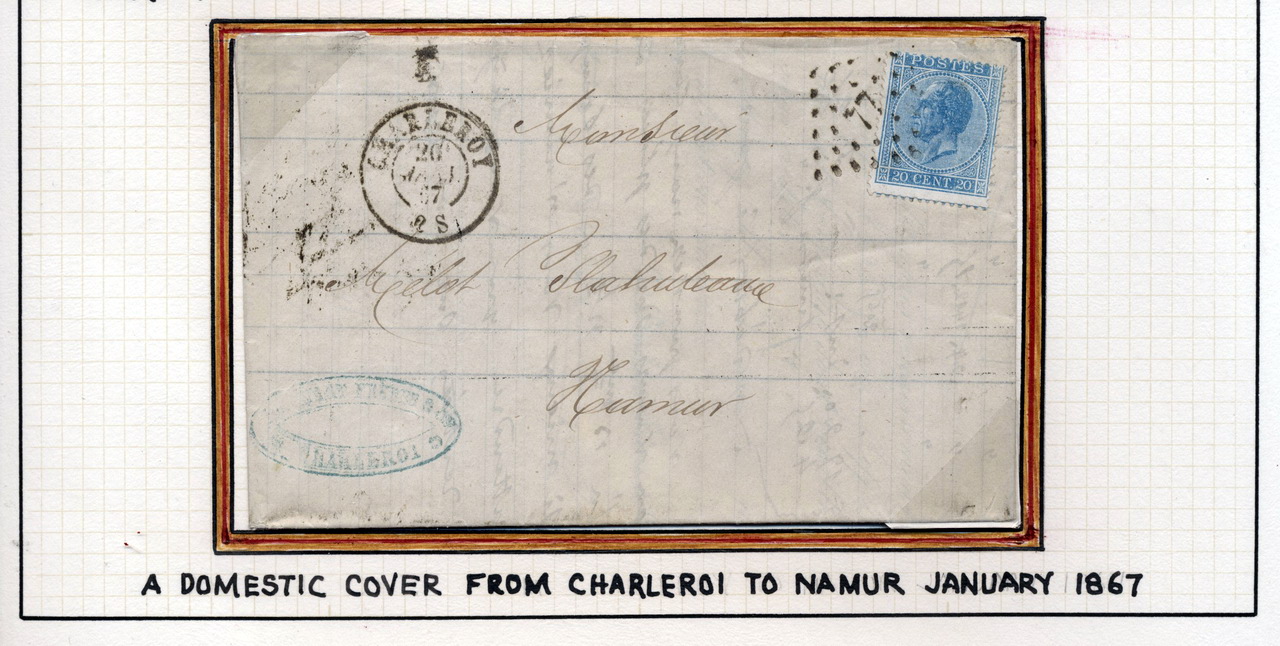 POSTES
77
20 CENT 20
CHARLEROY
26
JANV
67
2 S
Monsieur
Melot
Namur
CHARLEROI
A DOMESTIC COVER FROM CHARLEROI TO NAMUR JANUARY 1867